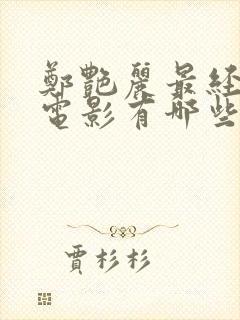 鄭艷麗最經
電影有哪些
賈杉杉